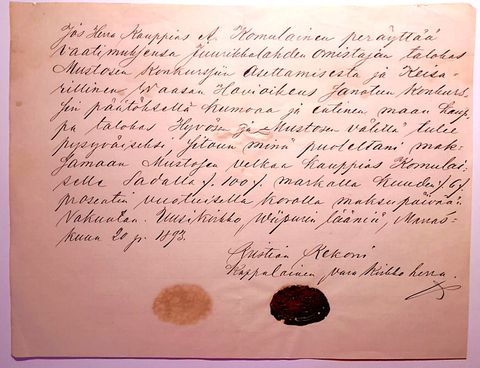 Jos Herra Kauppias A. Komulainen peräyttää
vaatimuksensa Juurikkalahden omistajan talokas
Mustosen konkurssiin asettamisesta ja Keisa-
rillinen Waasan Hovioikeus Janotun Konkurs-
sin päätöksellä kumoaa ja entinen maan kaup-
pa talokas Hyvösen ja Mustosen välillä tulee
pysyväiseksi, sitoun minä puolestani mak-
samaan Mustosen velkaa kauppias Komulai-
selle Sadalla /. 100 /. markalla kuuden /. 6 /.
prosentin vuotuisella korolla maksupäivään.
Vakuutan. Uusikirkko, Wiipurin lääniä, Marras-
kuun 20 p. 1893.
Kristian Kekoni
Kappalainen, vara kirkko herra.